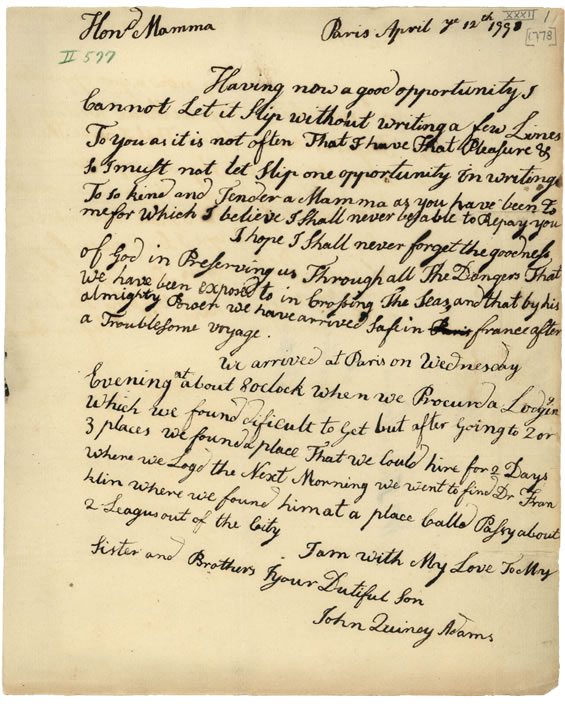 XXXII 1
Hond. Mamma Paris April ye 12th 1778
[1778]
II 577
Having now a good opportunity I
Cannot Let it Slip without writing a few Lines
To you as it is not often That I have That Pleasure &
So I must not let Slip one opportunity in writing
To so kind and Tender a Mamma as you have been To
me for Which I believe I Shall never be able to Repay you
I hope I Shall never forget the goodness,
of God in Preserving us Through all The Dangers That
We have been exposed to in Crossing The Seas, and that by his
almighty Power we have arrived Safe in Paris france after
a Troublesome voyage.
We arrived at Paris on Wednesday
Evening at about 8 oclock When we Procurd a Lodgin
Which we found dificult to Get but after Going to 2 or
3 places we found a place That we Could hire for 2 Days
where we Logd the Next Morning we went to find Dr Fran
klin where we found him at a place Calld Passy about
2 Leagus out of the City
I am with My Love To My
Sister and Brothers your Dutiful Son
John Quincy Adams